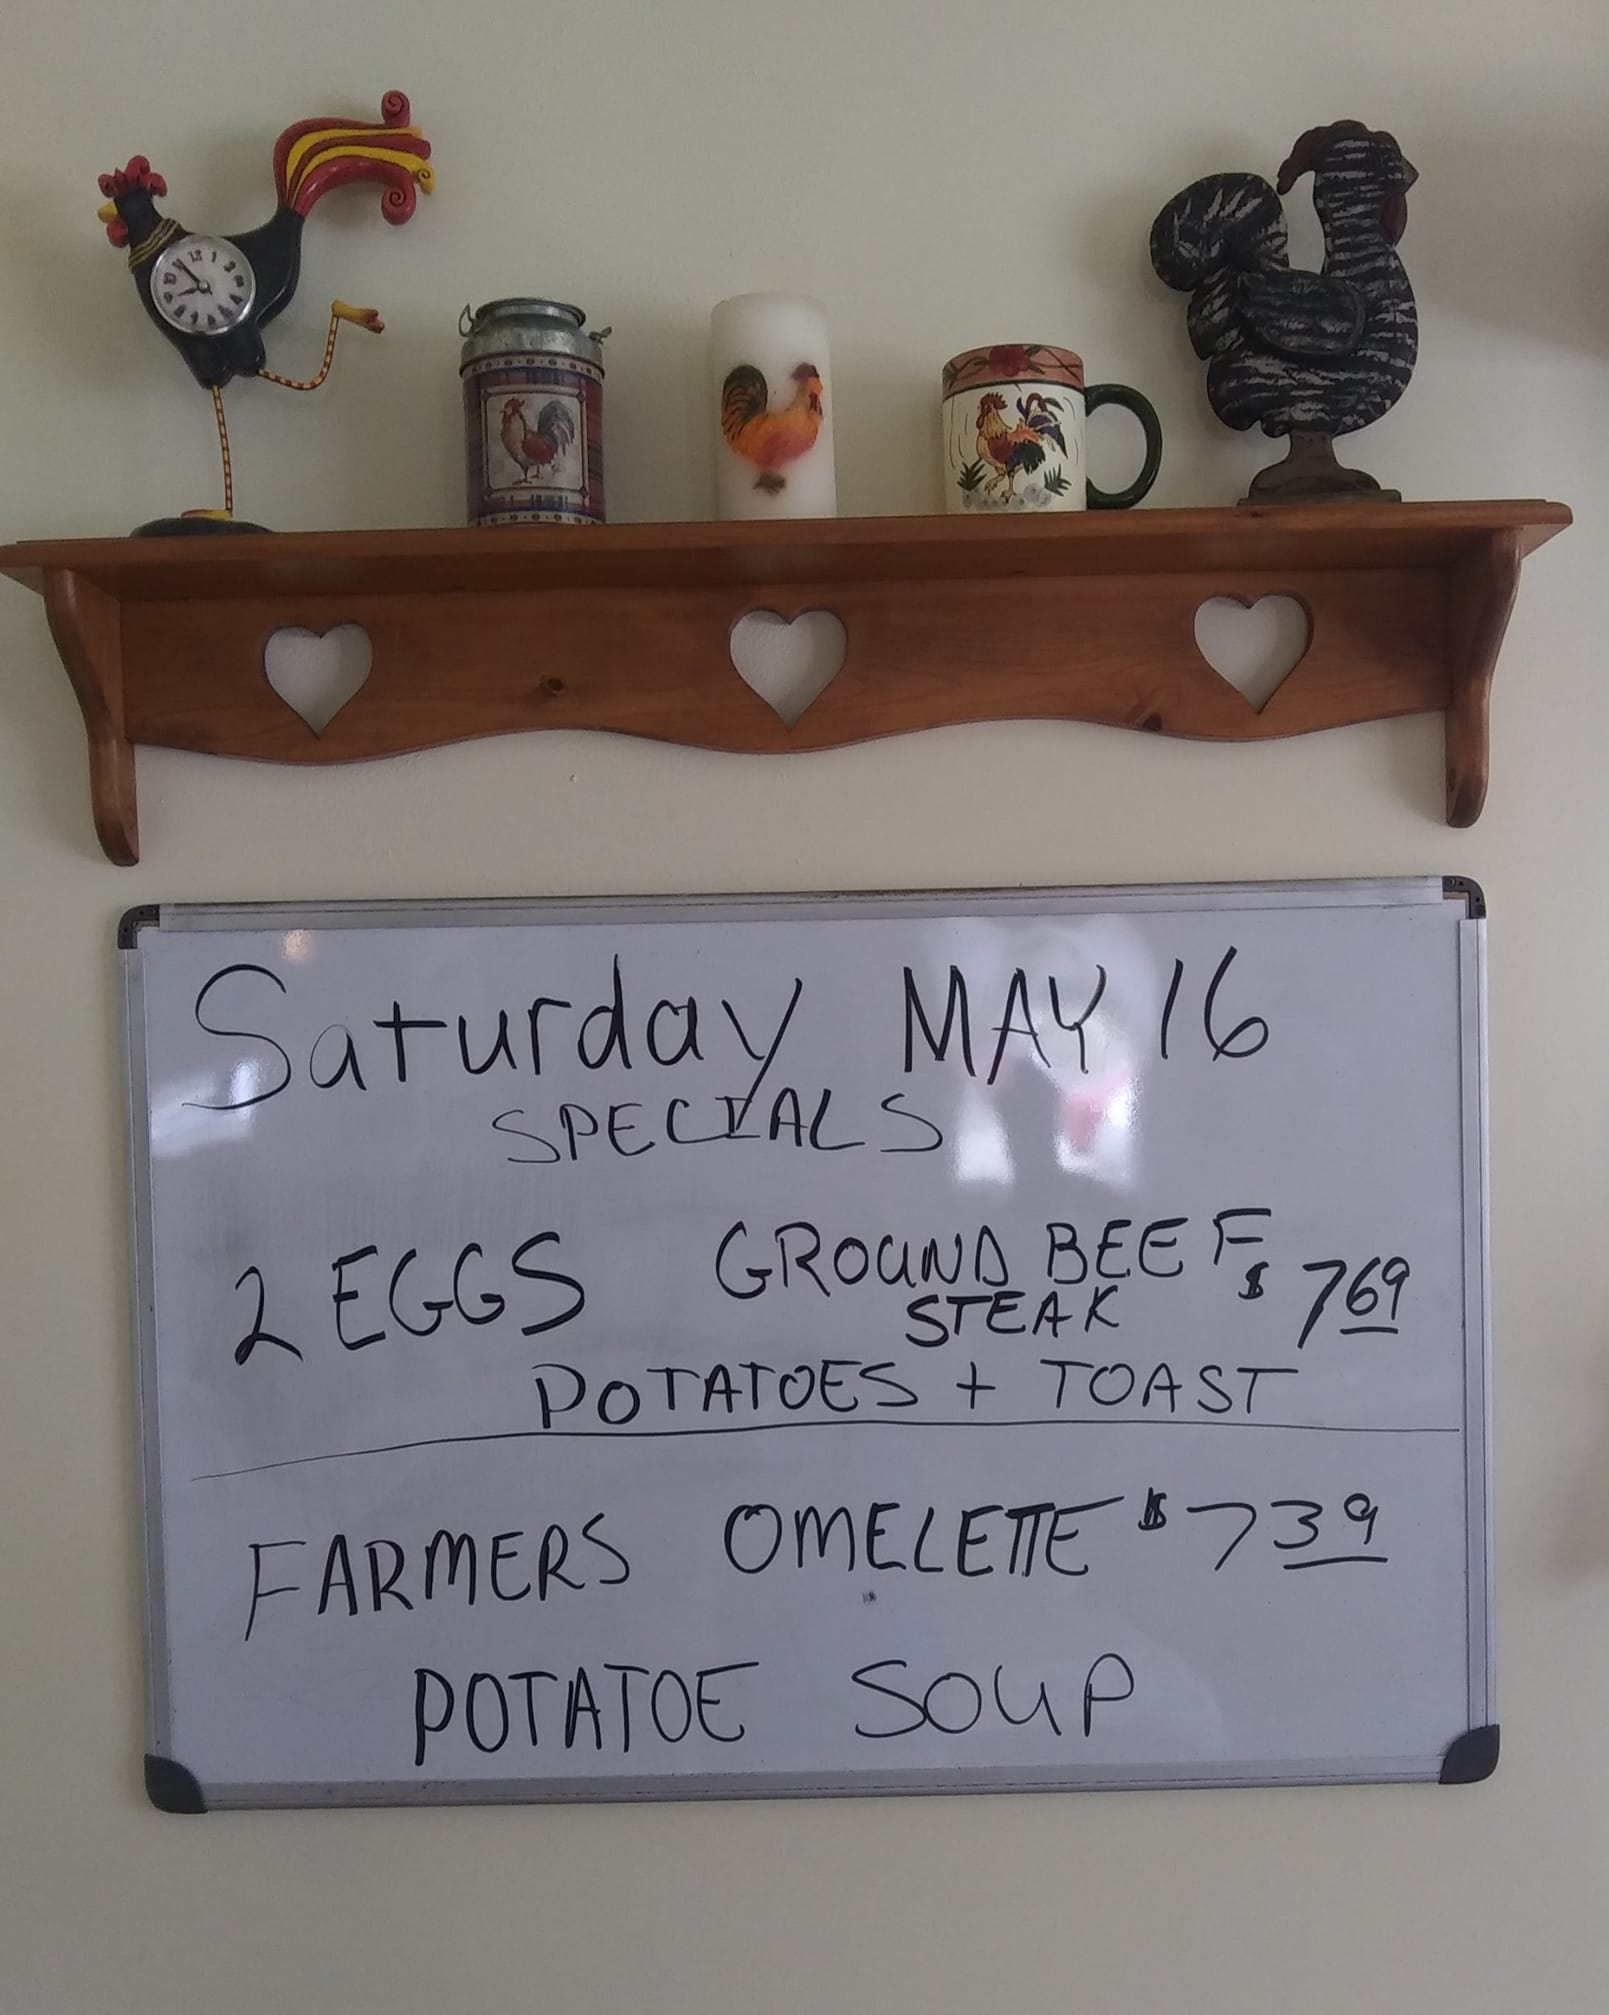 Saturday MAY 16
SPECIALS
2 EGGS GROUND BEEF
STEAK $ 769
POTATOES + TOAST
FARMERS OMELETTE $ 739
POTATOE SOUP